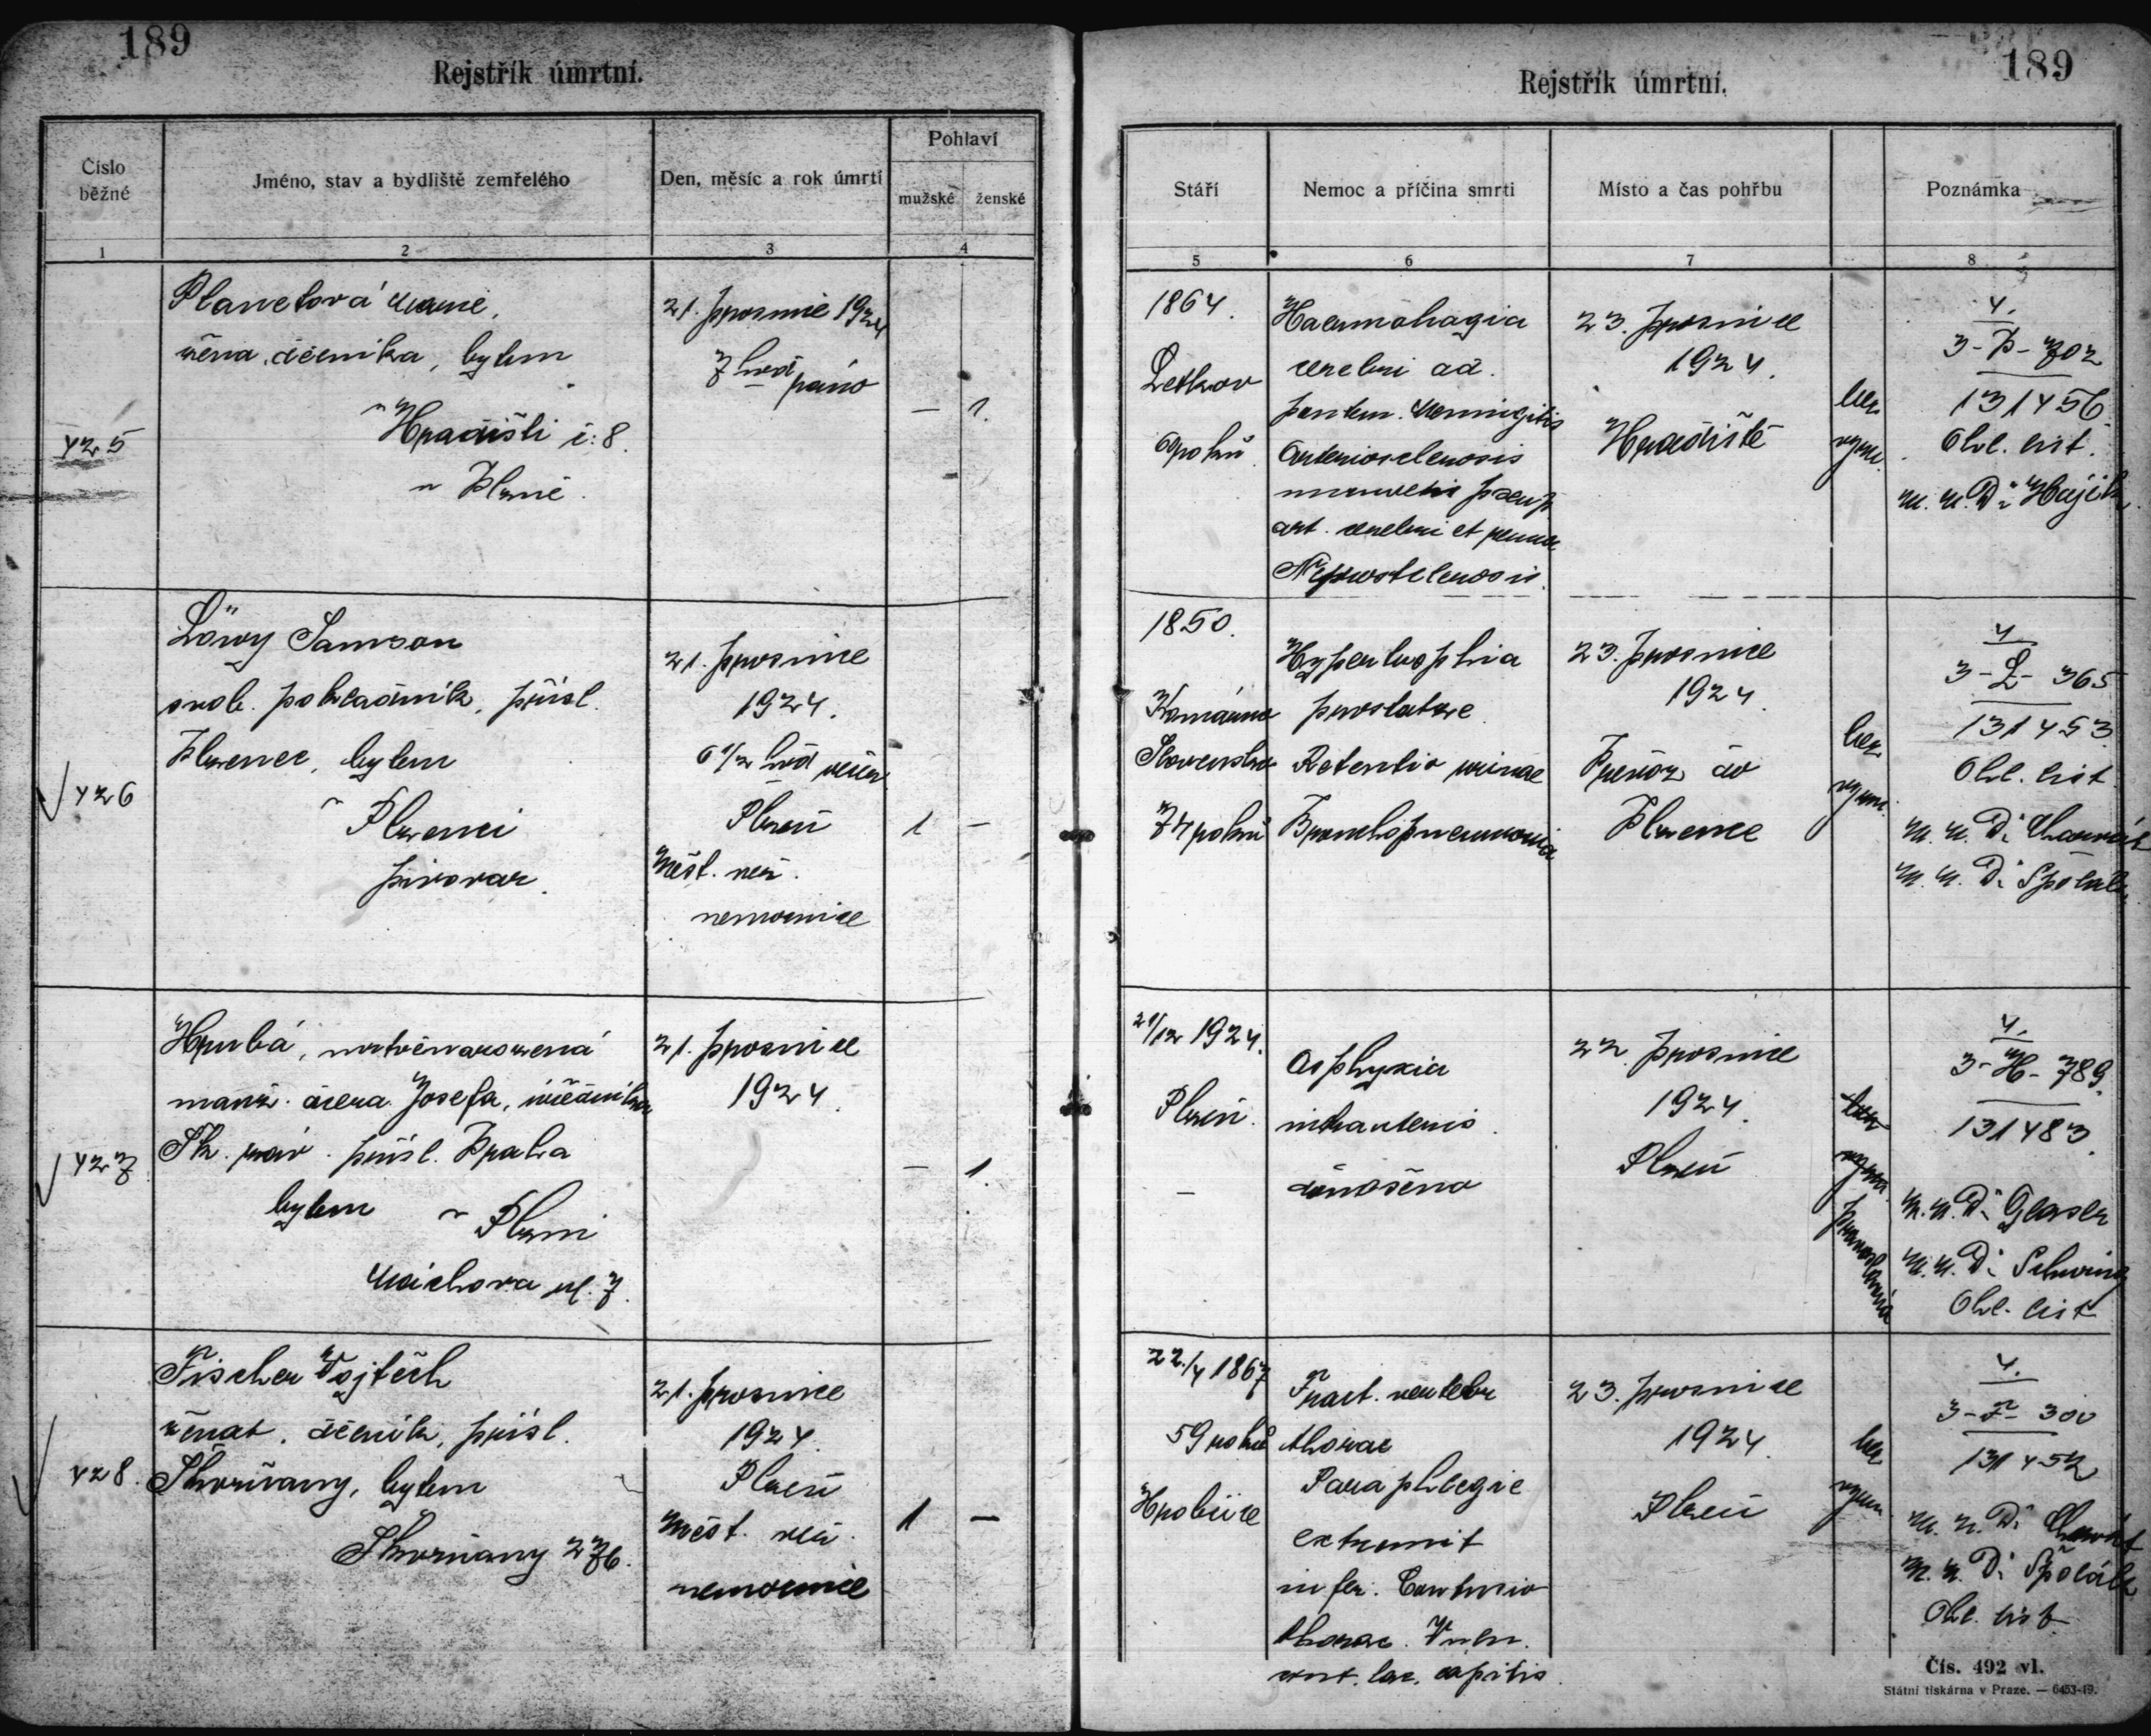 189
Rejstřík úmrtní.
Číslo běžné
Jméno, stav a bydliště zemřelého
Den, měsíc a rok úmrtí
Pohlaví
mužské
ženské
1
2
3
4
425
Planetová Marie,
žena dělníka, bytem
v Hradišti č: 8
u Plzně.
21. prosince 1924
7 hod ráno
—
1.
426
Löwy Samson
svob. pokladník, přísl.
Plzenec, bytem
v Plzenci
pivovar.
21. prosince
1924.
6 1/2 hod večer
Plzeň
Měst. veř.
nemocnice
1
—
427
Hrubá, mrtvěnarozená
manž. dcera Josefa, úředníka
Šk. záv. přísl. Praha
bytem v Plzni
Máchova ul. 7.
21. prosince
1924.
—
1.
428.
Fischer Vojtěch
ženat. dělník, přísl.
Skvrňany, bytem
Skvrňany 276.
21. prosince
1924.
Plzeň
Měst. veř.
nemocnice
1
—
189
Rejstřík úmrtní.
Stáří
Nemoc a příčina smrti
Místo a čas pohřbu
Poznámka
5
6
7
8
1864.
Letkov
60 roků
Haemorhagia
cerebri ad.
Meningitis
Arteriosclerosis
art. cerebri et
23. prosince
1924.
Hradiště
bez
vyzn.
4.
3-P-702
131456
Ohl. list.
M. U. Dr Hájek
1850.
Komárno
Slovensko
74 roků
Hypertrophia
prostatae
Retentio urinae
Bronchopneumonia
23. prosince
1924.
Převoz do
Plzence
bez
vyzn.
4.
3-L-365
131453
Ohl. list
M. U. Dr
M. U. Dr Špolák
21/12 1924.
Plzeň.
—
Asphyxia
donošeno
22. prosince
1924.
Plzeň
bez
vyzn.
pravoslavná
4.
3-H-789
131483.
M. U. Dr Glaser
M. U. Dr
Ohl. list
22./4 1867
59 roků
Hrobčice
Fract. vertebr
thorac
Paraphlegie
extremit
infer. Contusio
thorac. Vuln.
cont. lac. capitis
23. prosince
1924.
Plzeň
bez
vyzn.
4.
3-F-300
131452
M. U. Dr
M. U. Dr Špolák
Ohl. list.
Čís. 492 vl.
Státní tiskárna v Praze. — 6453-19.